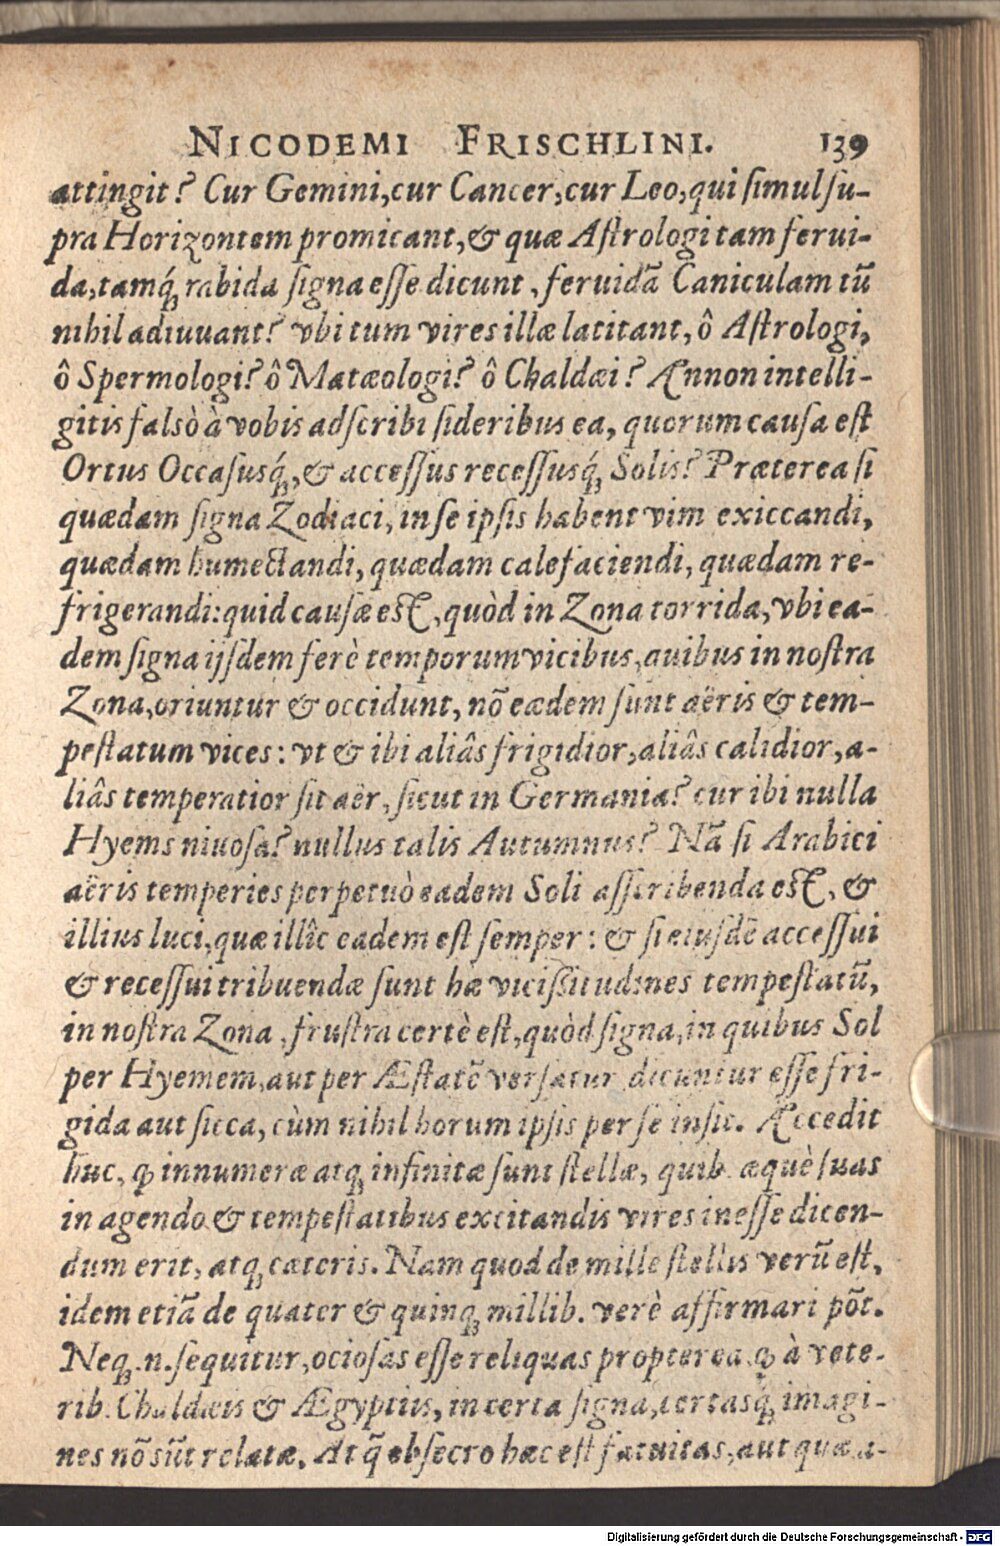 NICODEMI FRISCHLINI. 139
attingit? Cur Gemini, cur Cancer, cur Leo, qui simul su-
pra Horizontem promicant, & quæ Astrologi tam ferui-
da, tamq́; rabida signa esse dicunt, feruidā Caniculam tū
nihil adiuuant? vbi tum vires illæ latitant, ô Astrologi,
ô Spermologi? ô Matæologi? ô Chaldæi? Annon intelli-
gitis falsò à vobis adscribi sideribus ea, quorum causa est
Ortus Occasusq́;, & accessus recessusq́; Solis? Præterea si
quædam signa Zodiaci, in se ipsis habent vim exiccandi,
quædam humectandi, quædam calefaciendi, quædam re-
frigerandi: quid causæ est, quòd in Zona torrida, vbi ea-
dem signa ijsdem ferè temporum vicibus, quibus in nostra
Zona, oriuntur & occidunt, nō eædem sunt aëris & tem-
pestatum vices: vt & ibi aliâs frigidior, aliâs calidior, a-
liâs temperatior sit aër, sicut in Germania? cur ibi nulla
Hyems niuosa? nullus talis Autumnus? Nā si Arabici
aëris temperies perpetuò eadem Soli asscribenda est, &
illius luci, quæ illîc eadem est semper: & si eiusdē accessui
& recessui tribuendæ sunt hæ vicissitudines tempestatū,
in nostra Zona, frustra certè est, quòd signa, in quibus Sol
per Hyemem, aut per Æstatē versatur dicuntur esse fri-
gida aut sicca, cùm nihil horum ipsis per se insit. Accedit
huc, ꝙ innumeræ atq; infinitæ sunt stellæ, quib. æquè suas
in agendo & tempestatibus excitandis vires inesse dicen-
dum erit, atq; cæteris. Nam quod de mille stellis verū est,
idem etiā de quater & quinq; millib. verè affirmari pōt.
Neq; .n. sequitur, ociosas esse reliquas propterea, ꝙ à vete-
rib. Chaldæis & Ægyptiis, in certa signa, certasq́; imagi-
nes nō sūt relatæ. At q̄ obsecro hæc est fatuitas, aut quæ a-
Digitalisierung gefördert durch die Deutsche Forschungsgemeinschaft - DFG